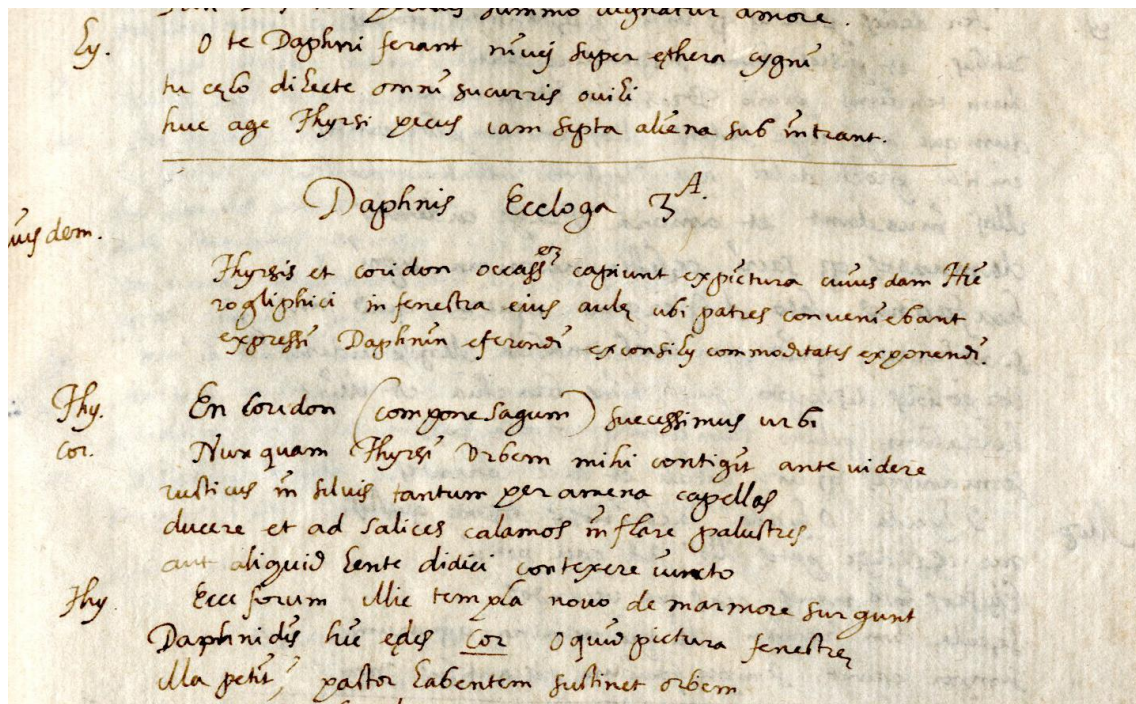 summo dignatur amore.
Ly. O te Daphni ferant nivej super ęthera cygni
tu cęlo dilecte omni sucurris ovili
huc age Thyrsi pecus iam septa aliena sub intrant.
Daphnis Eccloga 3A.
dem.
Thyrsis et coridon occass capiunt ex pictura cuius dam Hie
rogliphici in fenestra eius aulę ubi patres conveniebant
expressi Daphnin eferendi ex consilij commoditates exponendi.
Thy. En Coridon (compone sagum) sucessimus urbi
Cor. Nunquam Thyrsi Urbem mihi contigit ante videre
rusticus in silvis tantum per amena capellas
ducere et ad salices calamos inflare palustres
aut aliquid lente didici contexere iuncto
Thy. Ecce forum illic templa novo de marmore surgunt
Daphnidis hic ędes Cor O quid pictura fenestrę
illa petit, pastor labentem sustinet orbem